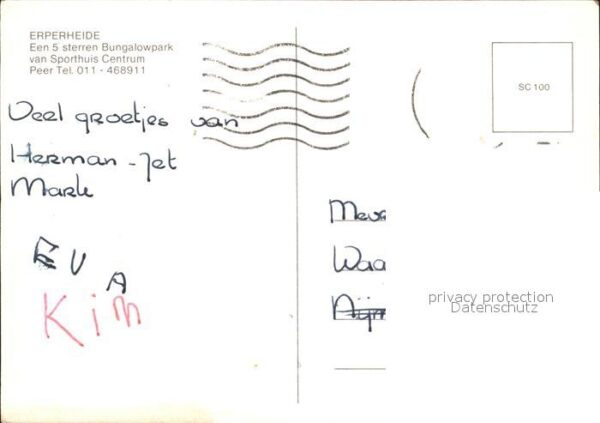 ERPERHEIDE
Een 5 sterren Bungalowpark
van Sporthuis Centrum
Peer Tel. 011 - 468911
SC 100
Veel groetjes van
Herman - Jet
Mark
EVA
Kim
Mevr
Waa
Nijm
privacy protection
Datenschutz